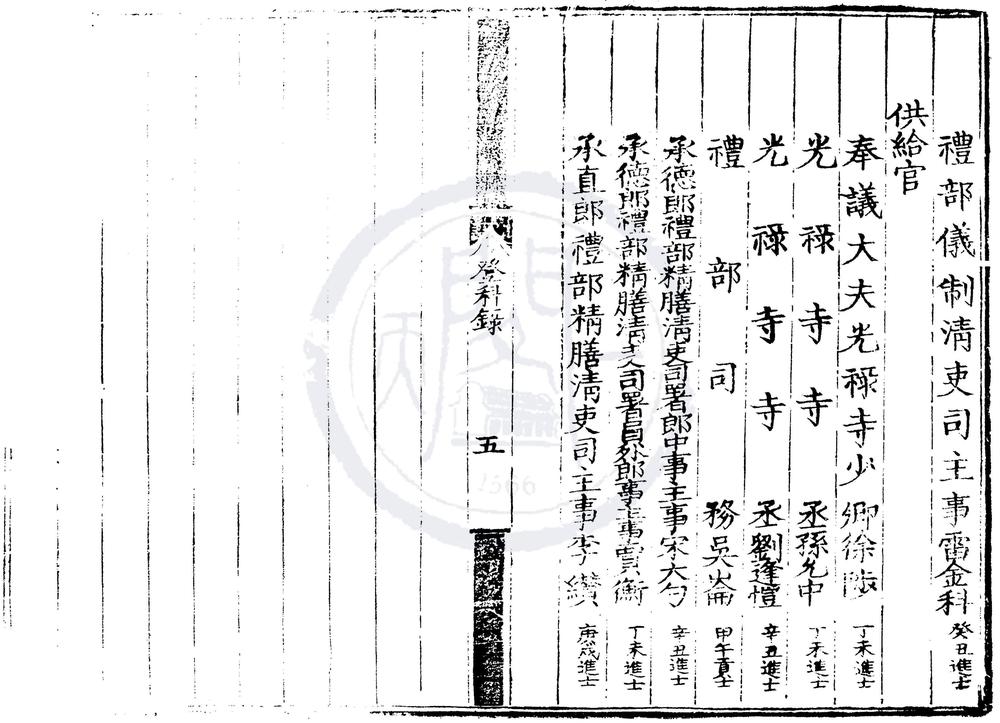 禮部儀制清吏司主事雷金科 癸丑進士
供給官
奉議大夫光祿寺少卿徐陟 丁未進士
光祿寺寺丞孫允中 丁未進士
光祿寺寺丞劉逢愷 辛丑進士
禮部司務吳崙 甲午貢士
承德郎禮部精膳清吏司署郎中事主事宋大勺 辛丑進士
承德郎禮部精膳清吏司署員外郎事主事賈衡 丁未進士
承直郎禮部精膳清吏司主事李纘 庚戌進士
登科錄
五
天
閣
1566